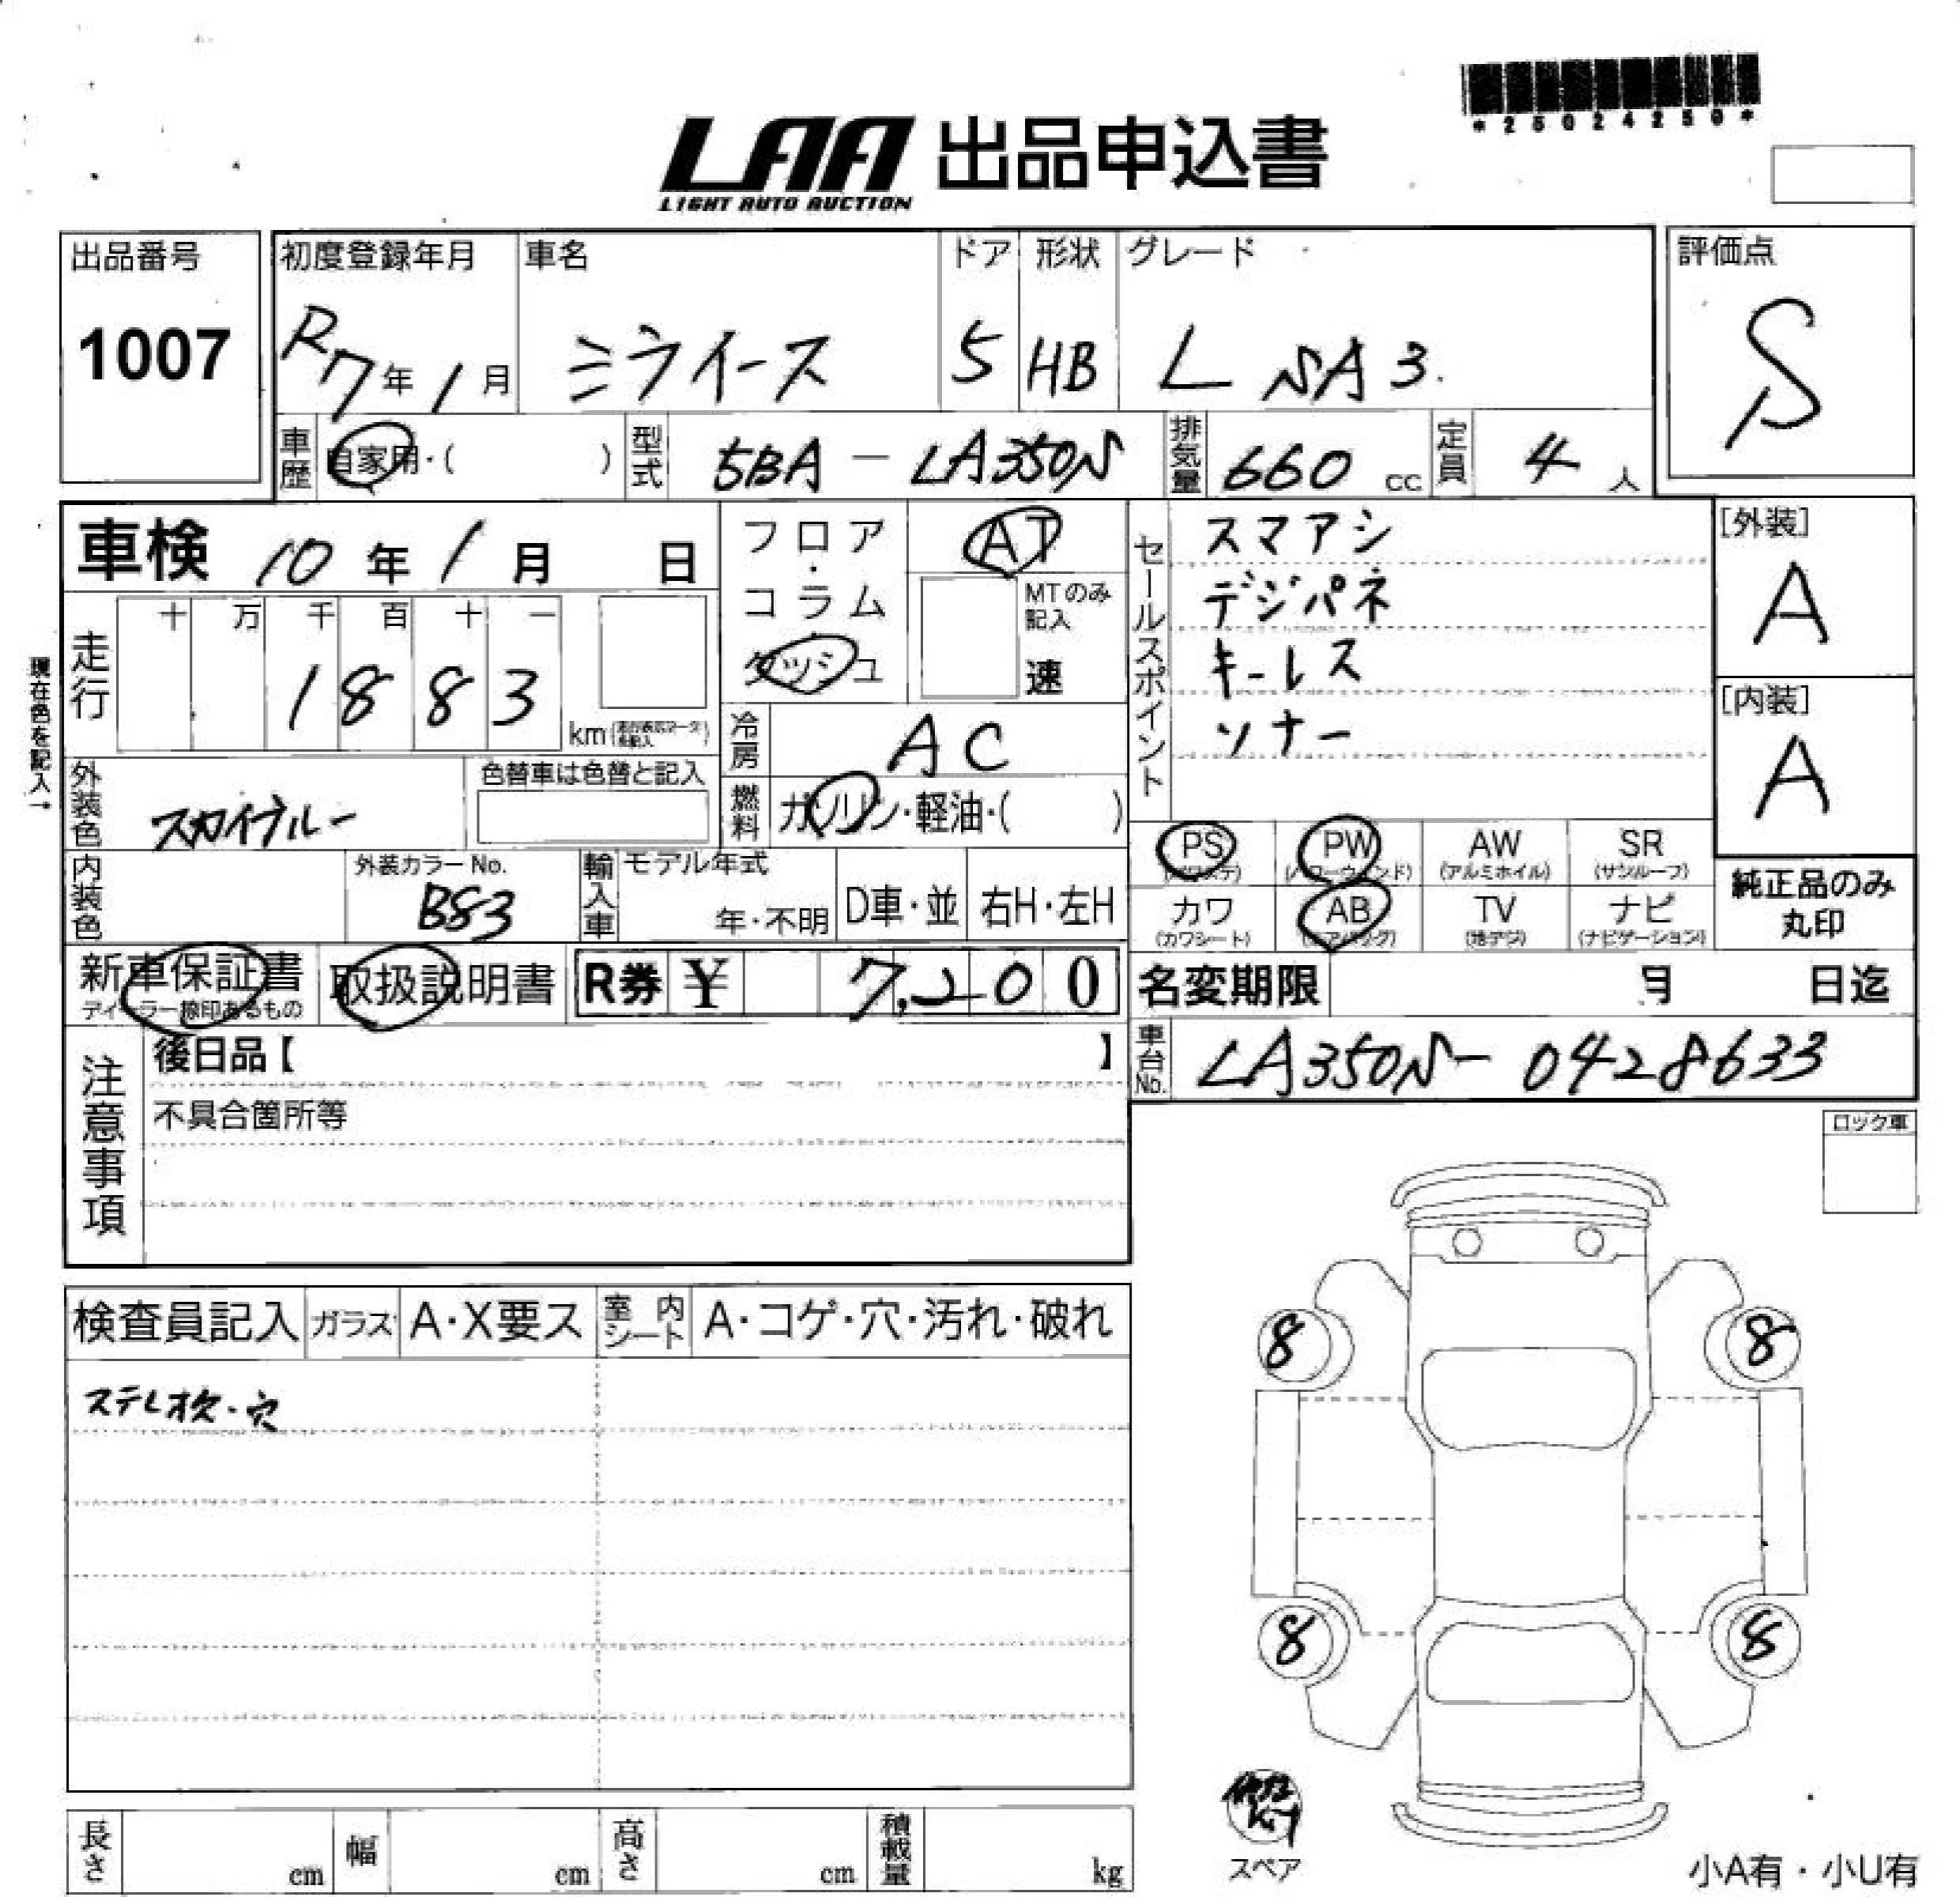 *25024250*
LAA 出品申込書
LIGHT AUTO AUCTION
出品番号
1007
初度登録年月
R7年1月
車名
ミライース
ドア
5
形状
HB
グレード
L SA3
評価点
S
車歴
自家用・( )
型式
5BA-LA350S
排気量
660 cc
定員
4人
車検 10年1月 日
フロア・コラム
ダッシュ
AT
MTのみ記入
速
セールスポイント
スマアシ
デジパネ
キーレス
ソナー
[外装]
A
[内装]
A
現在色を記入→
走行
十 万 千 百 十 一
1883
km
冷房
AC
外装色
スカイブルー
色替車は色替と記入
燃料
ガソリン・軽油・( )
PS
(パワステ)
PW
(パワーウインド)
AW
(アルミホイル)
SR
(サンルーフ)
内装色
外装カラーNo.
B83
輸入車
モデル年式
年・不明
D車・並
右H・左H
カワ
(カワシート)
AB
(エアバッグ)
TV
(地デジ)
ナビ
(ナビゲーション)
純正品のみ
丸印
新車保証書
ディーラー捺印あるもの
取扱説明書
R券 ¥ 7,200
名変期限 月 日迄
注意事項
後日品【 】
不具合箇所等
車台No.
LA350S-0428633
ロック車
検査員記入
ガラス
A・X要ス
室内シート
A・コゲ・穴・汚れ・破れ
ステレオ欠・穴
8 8
8 8
スペア
長さ cm
幅 cm
高さ cm
積載量 kg
小A有・小U有